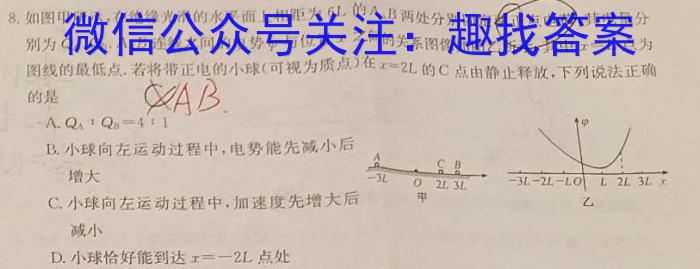 8. 如图甲 在绝缘光滑的水平面上相距为6L的A、B两处分
别为Q 的关系图像 为
微信公众号关注：趣找答案
图线的最低点.若将带正电的小球(可视为质点)在x=2L的C点由静止释放,下列说法正确
的是
AB.
A. QA：QB=4：1
B. 小球向左运动过程中,电势能先减小后
增大
C. 小球向左运动过程中,加速度先增大后
减小
D. 小球恰好能到达x=-2L点处
A C B
-3L O 2L 3L x
甲
φ
-3L -2L -L O L 2L 3L x
乙